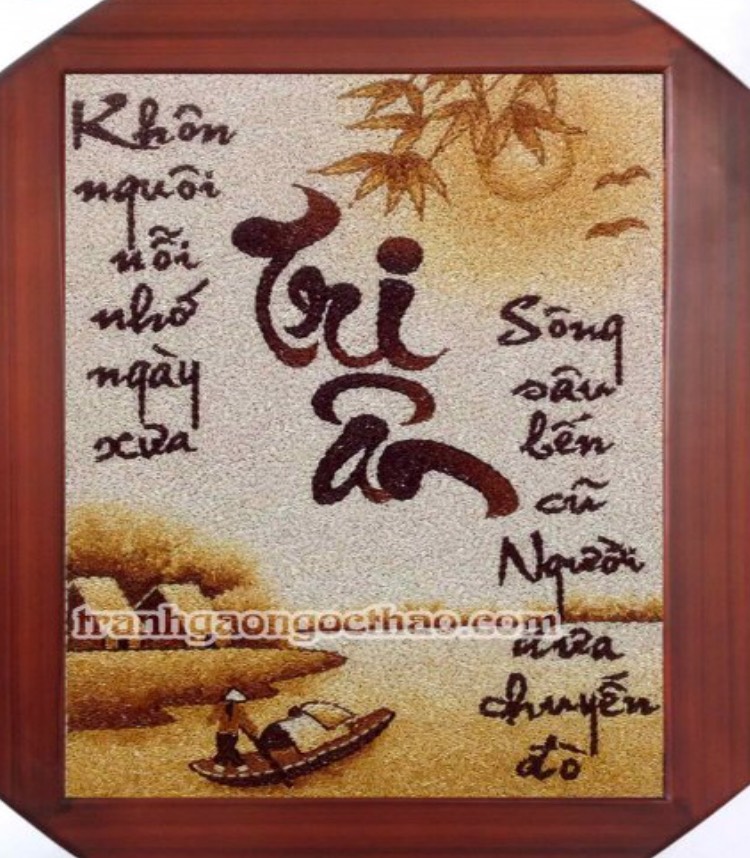 Khôn
nguôi
nỗi
nhớ
ngày
xưa
Tri
ân
Sông
sâu
bến
cũ
Người
đưa
chuyến
đò
tranhgaongocthao.com